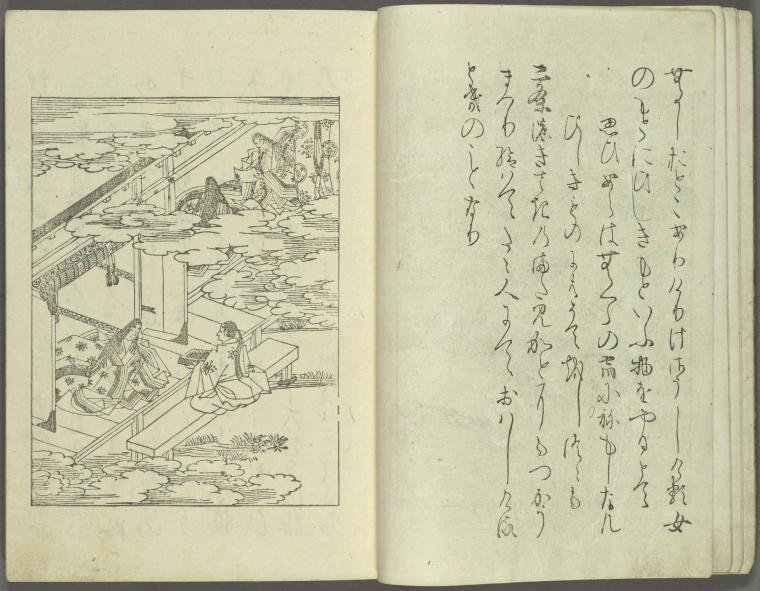 むかしおとこありけりけさうしける女
のもとにひしきもといふ物をやるとて
思ひあらはむくらの宿にねもしなん
ひしきものには袖をしつゝも
二条のきさきのまた見かとにもつかう
まつり給はてたゝ人にておはしける
ときのことなり